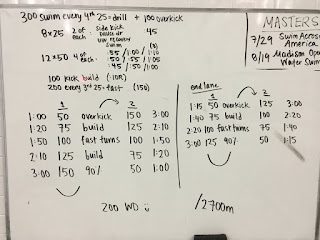 300 swim every 4th 25=drill + 100 overkick
8x25 2 of each: side kick 45
swim
12x50 4 of each: .55 / 1:00 / 1:10 (3)
.50 / :55 / 1:05
.45 / :50 / 1:00
100 kick build (-10R)
200 every 3rd 25=fast (150)
1 → 2
1:00 50 overkick 150 3:00
1:20 75 build 125 2:10
1:50 100 fast turns 100 1:50
2:10 125 build 75 1:20
3:00 150 90% 50 1:00
end lane
1 → 2
1:15 50 overkick 125 3:00
1:40 75 build 100 2:20
2:20 100 fast turns 75 1:40
3:00 125 90% 50 1:15
200 WD
/2700m
MASTERS
7/29 Swim Across America
8/19 Madison Open Water Swim